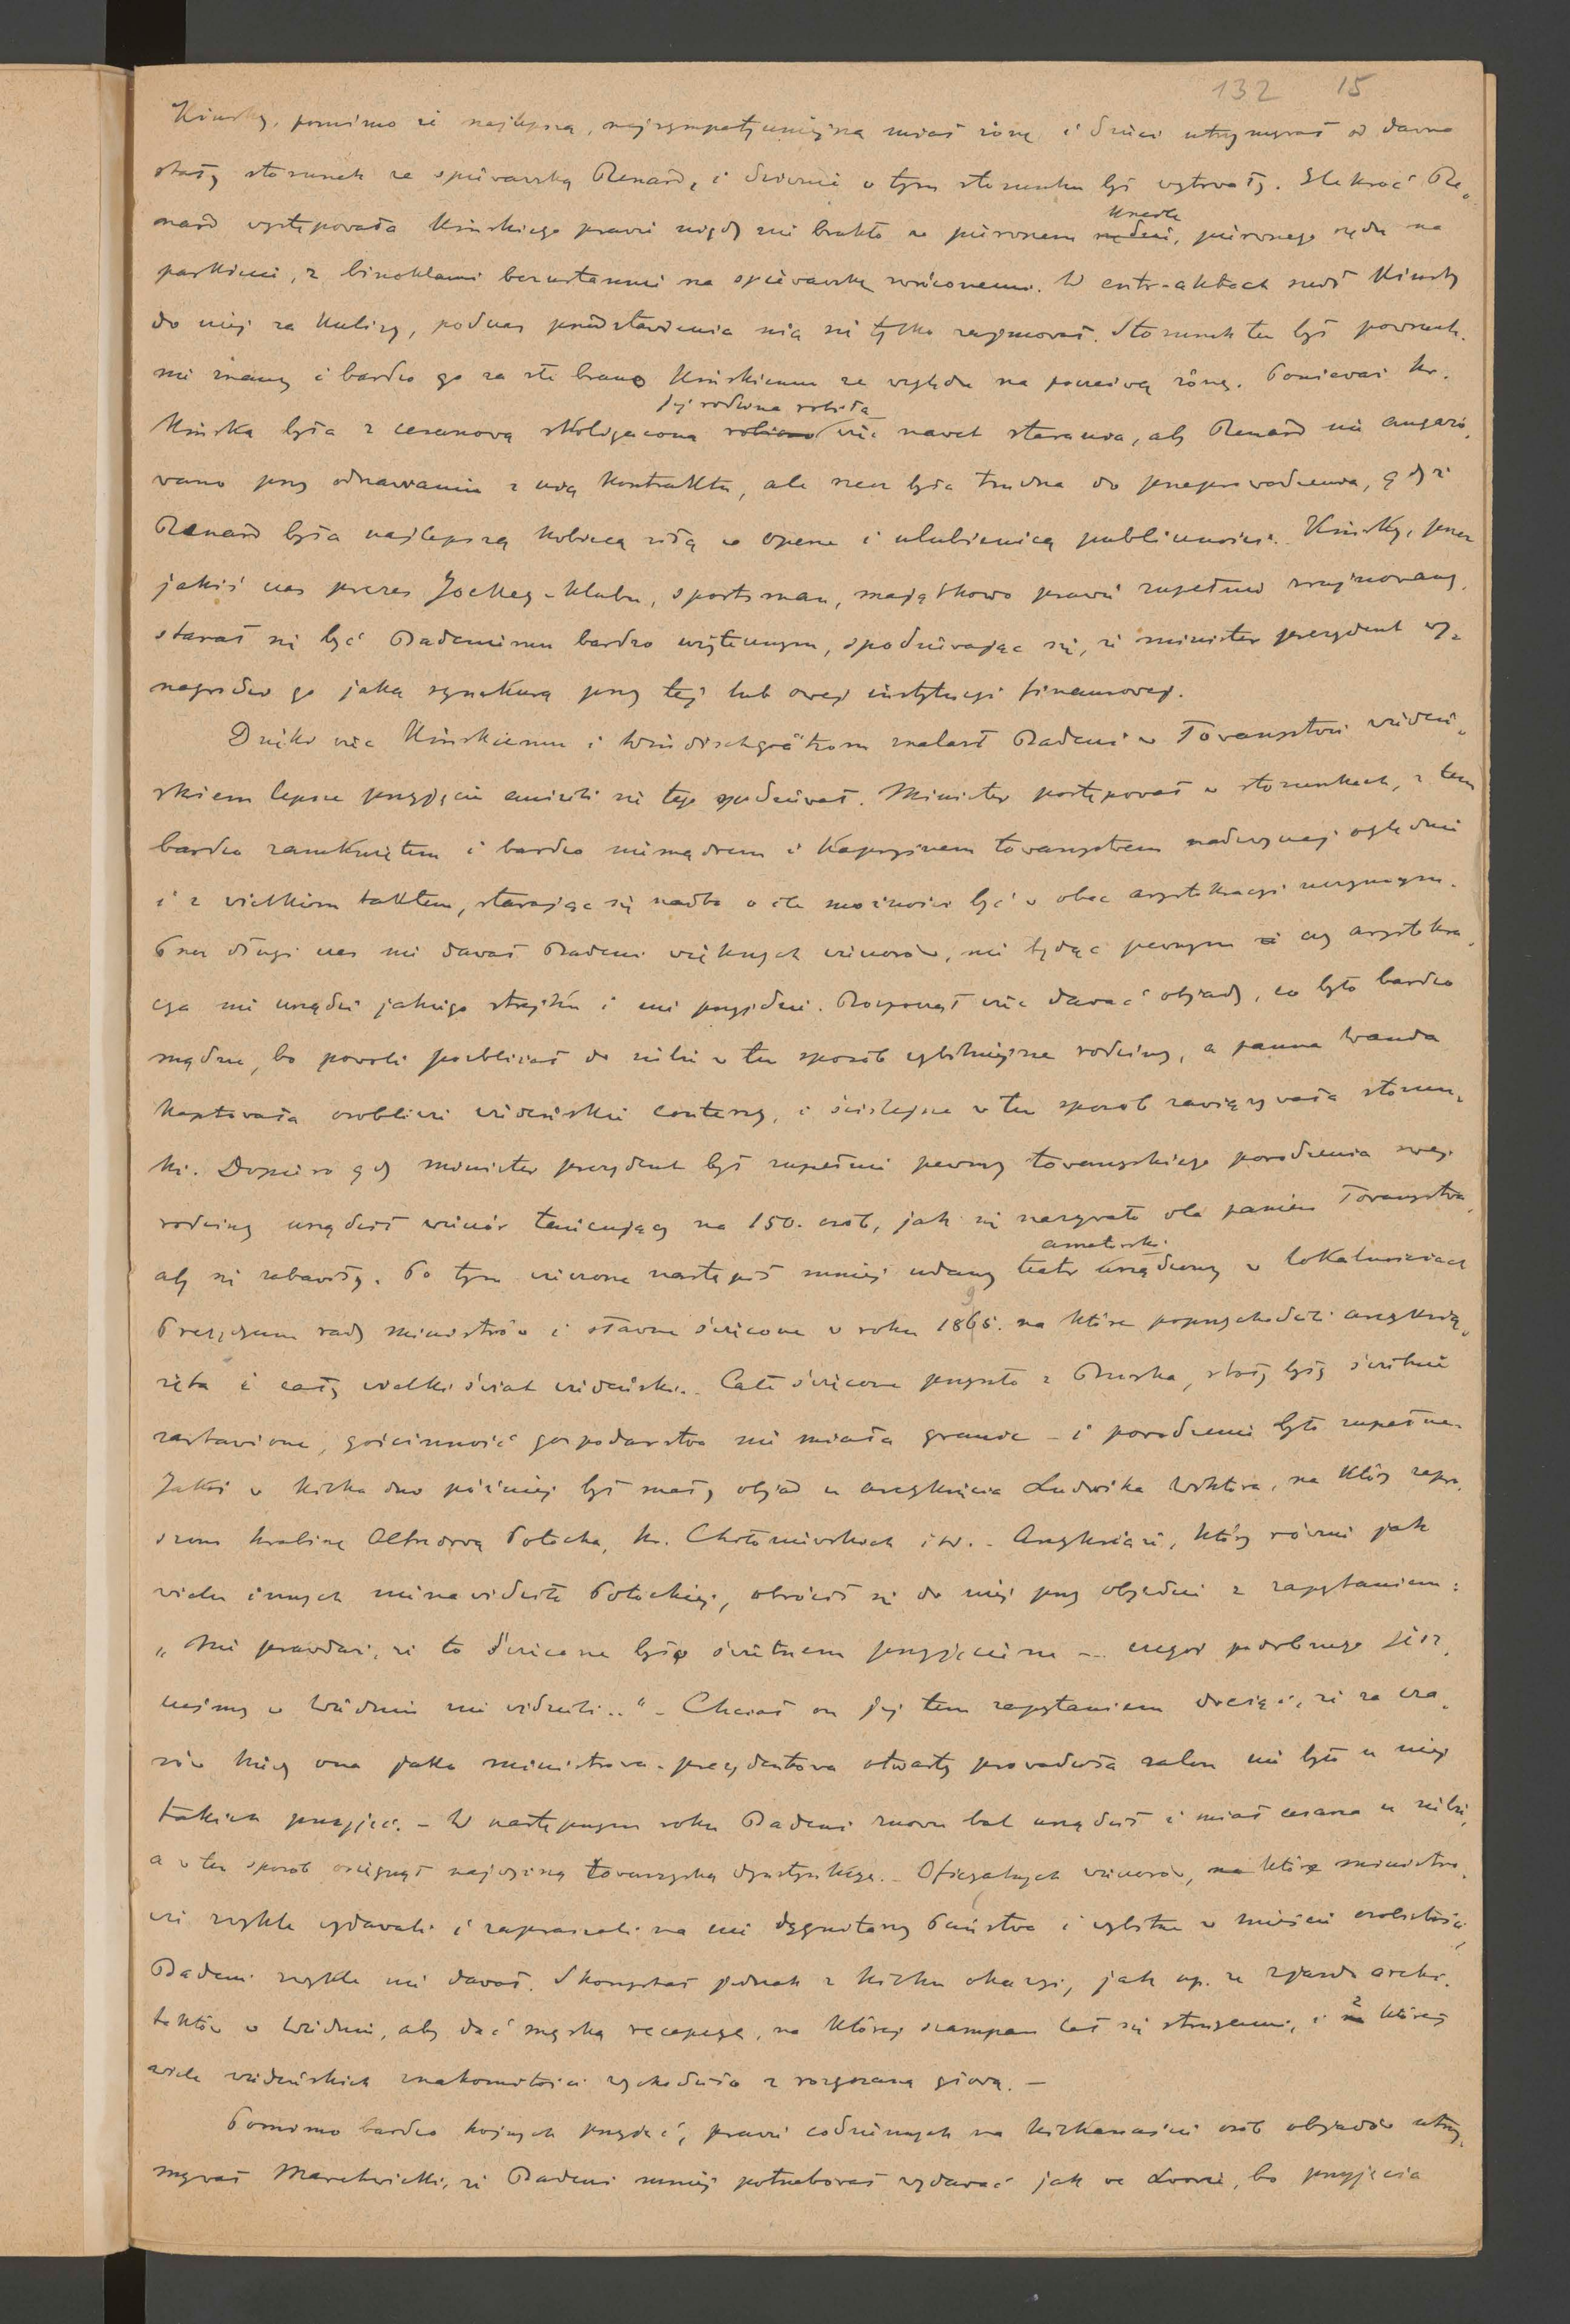 132 15
Kinsky, pomimo że najlepszą, najsympatyczniejszą miał żonę i dzieci utrzymywał od dawna
stały stosunek ze śpiewaczką Renard, i dziwnie w tym stosunku był wytrwały. Ilekroć Re-
nard występowała Kinskiego prawie nigdy nie brakło w pierwszem krześle, pierwszego rzędu na
parkiecie, z binoklami bezustannie na śpiewaczkę zwróconemi. W entr-aktach szedł Kinsky
do niej za kulisy, podczas przedstawienia nią się tylko zajmował. Stosunek ten był powszech-
nie znany i bardzo go za złe brano Kinskiemu ze względu na poczciwą żonę. Ponieważ hr.
Kinska była z cesarzową skoligacona jej rodzina robiła więc nawet starania, aby Renard nie angażo-
wano przy odnawianiu z nią kontraktu, ale rzecz była trudna do przeprowadzenia, gdyż
Renard była najlepszą kobiecą siłą w operze i ulubienicą publiczności. Kinsky, przez
jakiś czas prezes Jockey-Klubu, sportsman, majątkowo prawie zupełnie zrujnowany,
starał się być Badeniemu bardzo użytecznym, spodziewając się, że minister prezydent wy-
nagrodzi go jaką synekurą przy tej lub owej instytucyi finansowej.
Dzięki więc Kinskiemu i Windischgrätzom znalazł Badeni w Towarzystwie wiedeń-
skiem lepsze przyjęcie aniżeli się tego spodziewał. Minister postępował w stosunkach, z tem
bardzo zamkniętem i bardzo niemądrem i kapryśnem towarzystwem nadzwyczaj oględnie
i z wielkim taktem, starając się nadto o ile możności być w obec arystokracyi uczynnym.
Przez długi czas nie dawał Badeni większych wieczorów, nie będąc pewnym czy arystokra-
cya nie urządzi jakiego strejku i nie przyjdzie. Rozpoczął więc dawać objady, co było bardzo
mądre, bo powoli pozbliżał do siebie w ten sposób wybitniejsze rodziny, a panna Wanda
kaptowała osobliwie wiedeńskie contessy, i ściślejsze w ten sposób zawiązywała stosun-
ki. Dopiero gdy minister prezydent był zupełnie pewny towarzyskiego powodzenia swej
rodziny urządził wieczór tańcujący na 150. osób, jak się nazywało dla panien Towarzystwa,
aby się zabawiły. Po tym wieczorze nastąpił mniej udany teatr amatorski urządzony w lokalnościach
Prezydyum rady ministrów i sławne święcone w roku 1896. na które poprzychodzili arcyksią-
żęta i cały wielki świat wiedeński. Całe święcone przyszło z Buska, stoły były świetnie
zastawione, gościnność gospodarstwa nie miała granic – i powodzenie było zupełne.
Jakoś w kilka dni później był mały objad u arcyksięcia Ludwika Wiktora, na który zapro-
szono hrabinę Alfredową Potocką, hr. Chołoniewskich i w. – Arcyksiążę, który równie jak
wielu innych nienawidził Potockiej, obrócił się do niej przy objedzie z zapytaniem:
„Nie prawdaż, że to święcone było świetnem przyjęciem – czegoś podobnego jesz-
cześmy w Wiedniu nie widzieli.." – Chciał on jej tem zapytaniem dociąć, że za cza-
sów kiedy ona jako ministrowa-prezydentowa otwarty prowadziła salon nie było u niej
takich przyjęć. – W następnym roku Badeni znowu bal urządził i miał cesarza u siebie,
a w ten sposób osiągnął najwyższą towarzyską dystynkcyę. – Oficyalnych wieczorów, które ministro-
wie zwykle wydawali i zapraszali na nie dygnitarzy Państwa i wybitne w mieście osobistości,
Badeni zwykle nie dawał. Skorzystał jednak z kilku okazyi, jak np. ze zjazdu archi-
tektów w Wiedniu, aby dać męską recepcyę, na której szampan lał się strugami, i z której
wiele wiedeńskich znakomitości wychodziło z rozgrzaną głową. –
Pomimo bardzo hojnych przyjęć, prawie codziennych na kilkanaście osób objadów utrzy-
mywał Marchwicki, że Badeni mniej potrzebował wydawać jak we Lwowie, bo przyjęcia